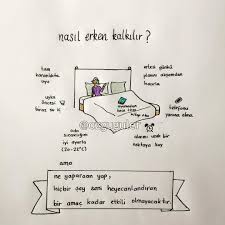 nasıl erken kalkılır?
tam
karanlıkta
uyu
ertesi günkü
planını akşamdan
hazırla
uyku
öncesi
biraz su iç
telefonu
yanına alma
@ozguguler
oda
sıcaklığını
iyi ayarla
(20-21°C)
alarmı uzak bir
noktaya koy
ama
ne yaparsan yap,
hiçbir şey seni heyecanlandıran
bir amaç kadar etkili olmayacaktır.